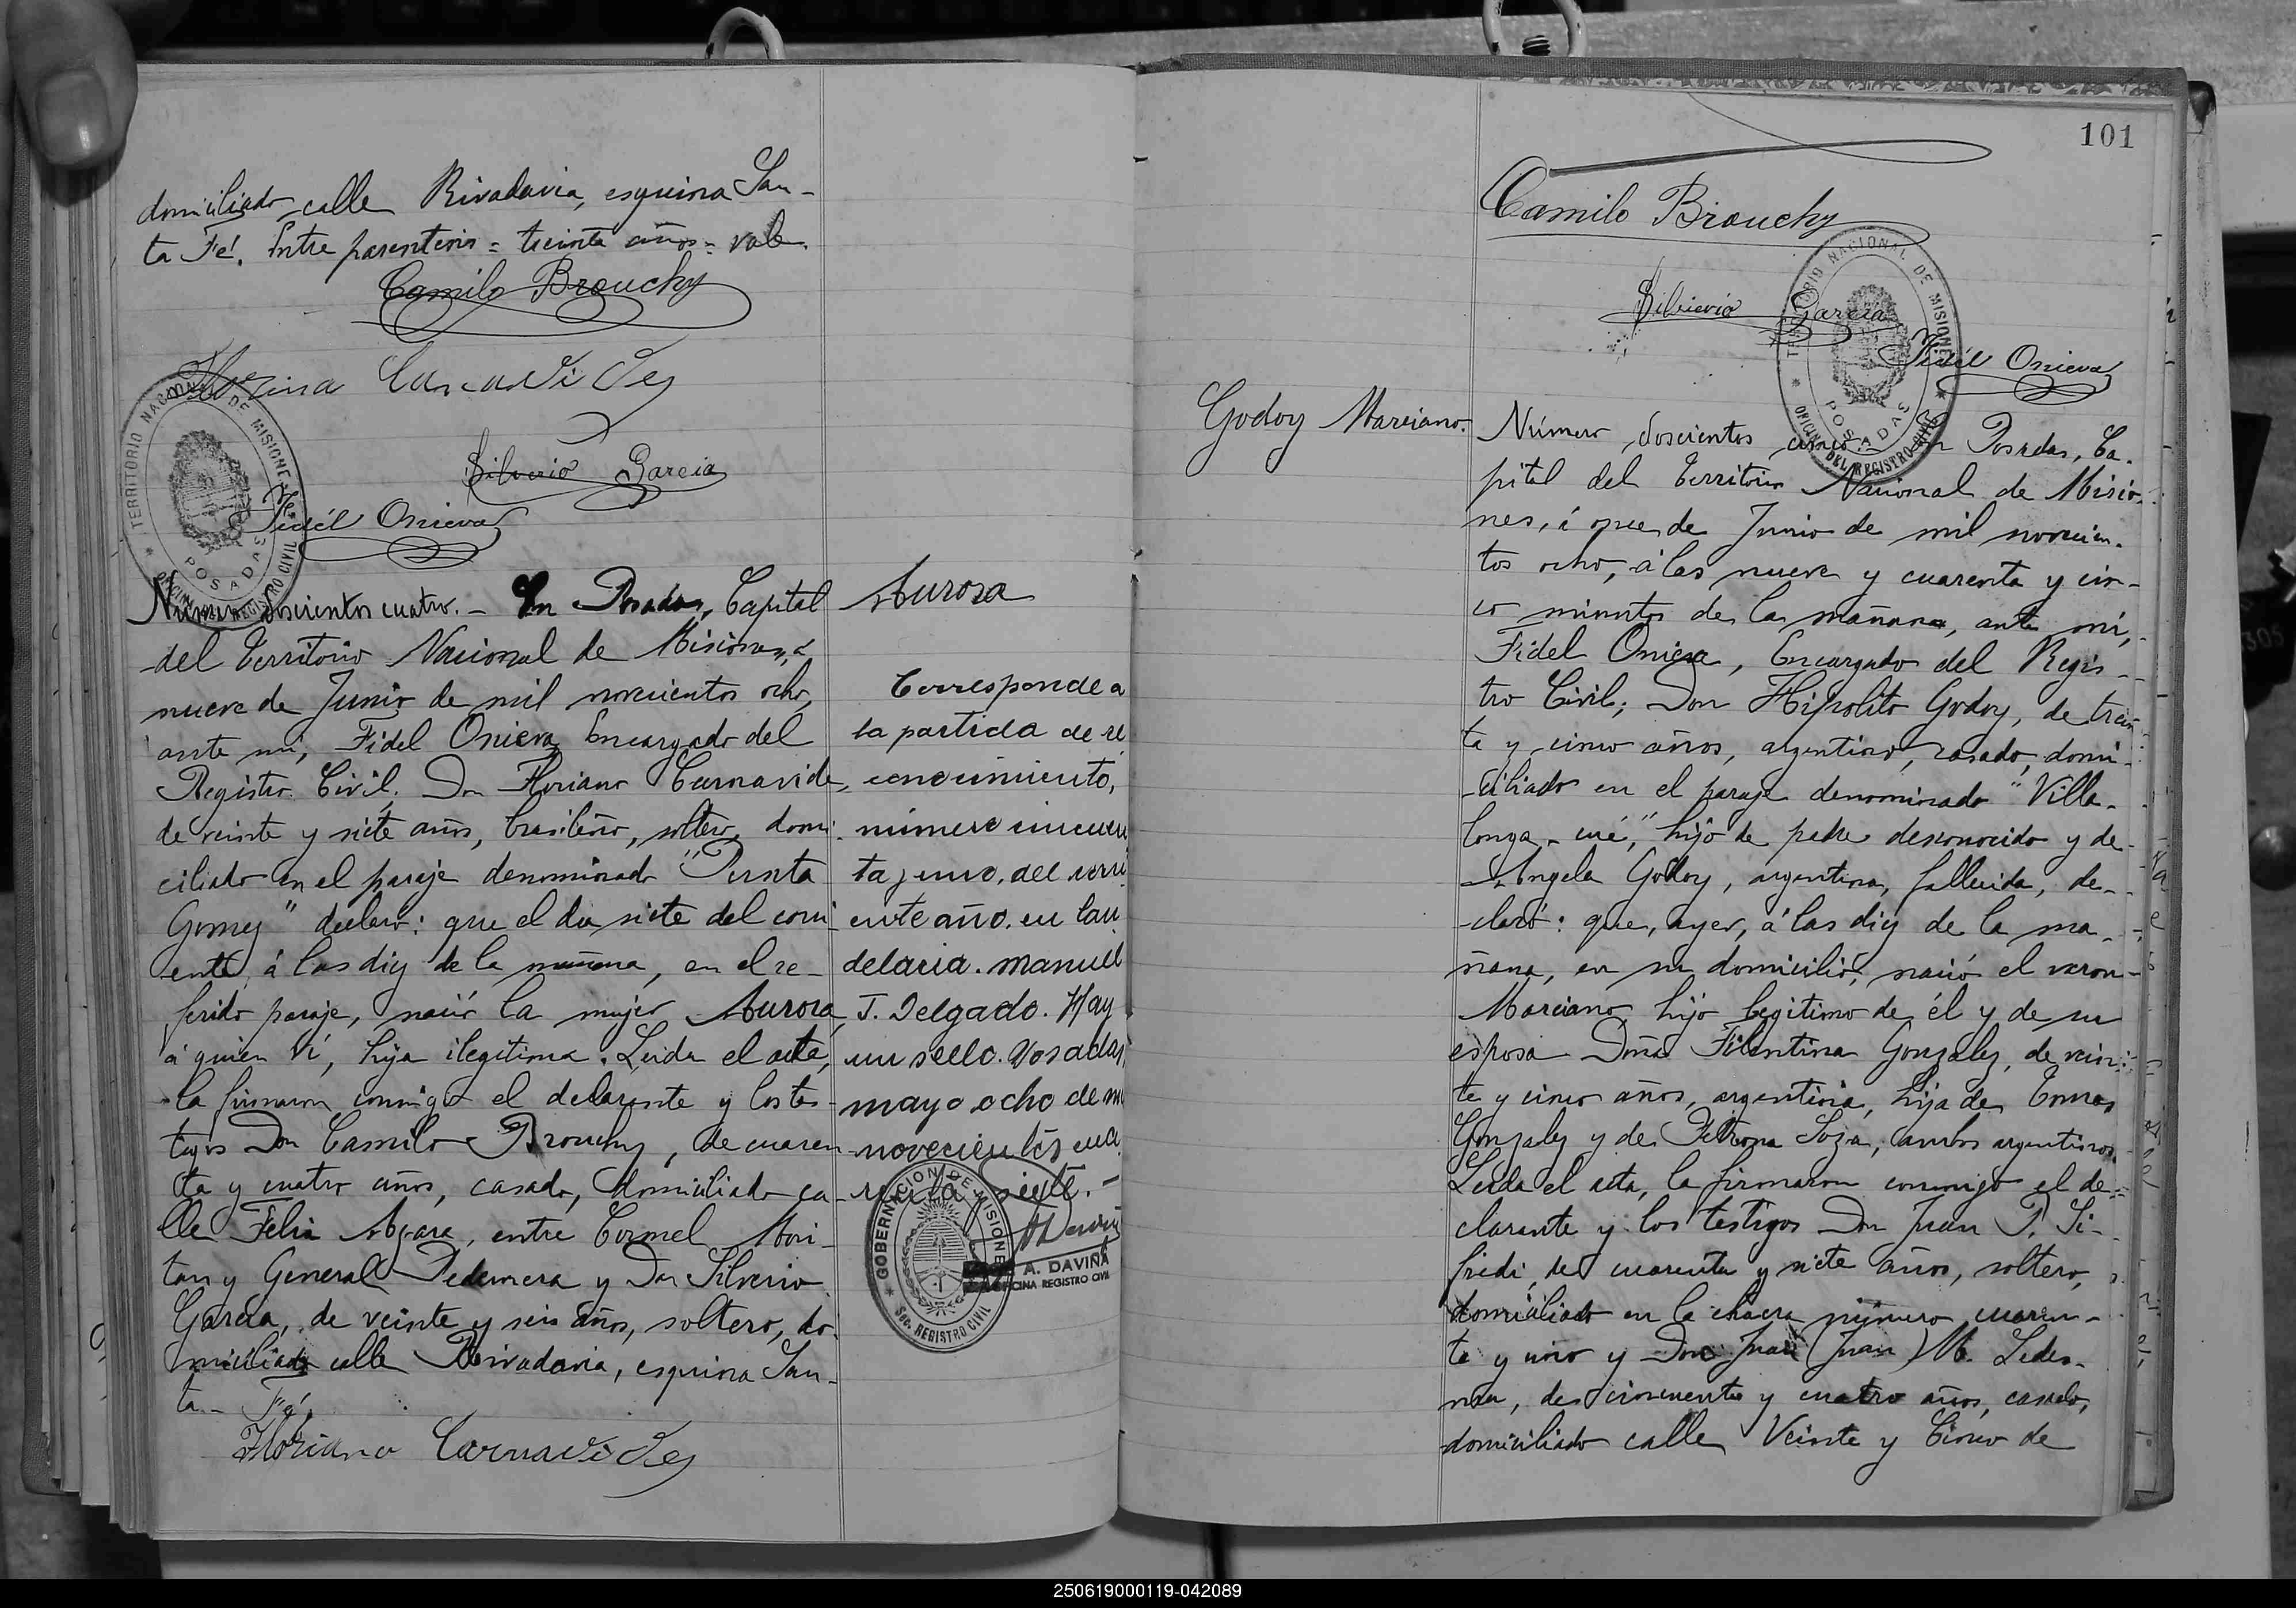 domiciliado calle Rivadavia, esquina San-
ta Fé. Entre parentesis = treinta años = vale.
Camilo Brouchy
Silverio Garcia
Fidél Onieva
TERRITORIO NACIONAL DE MISIONES
POSADAS
OFICINA DEL REGISTRO CIVIL
Número doscientos cuatro. - En Posadas, Capital
del Territorio Nacional de Misiones, á
nueve de Junio de mil novecientos ocho,
ante mi, Fidel Onieva Encargado del
Registro Civil. Don Floriano Carnavides,
de veinte y siete años, brasileño, soltero, domi-
ciliado en el paraje denominado "Punta
Gomez" declaró: que el dia siete del corri-
ente, á las diez de la mañana, en el re-
ferido paraje, nació la mujer Aurora,
á quien ví, hija ilegitima. Leida el acta,
la firmaron conmigo el declarante y los tes-
tigos Don Camilo Brouchy, de cuaren-
ta y cuatro años, casado, domiciliado ca-
lle Felix Azara, entre Coronel
General Pedernera y Don Silverio
Garcia, de veinte y seis años, soltero, do-
miciliado calle Rivadavia, esquina San-
ta - Fé.
Floriano Carnavides
Aurora
Corresponde a
la partida de re
conocimiento,
número cincuen
ta y uno, del corri
ente año, en Can
delaria. Manuel
J. Delgado. Hay
un sello. Posadas,
mayo ocho de mi
novecientos cua
renta y siete. -
GOBERNACION DE MISIONES
SEC. REGISTRO CIVIL
A. DAVIÑA
OFICINA REGISTRO CIVIL
101
Camilo Brouchy
Silverio Garcia
Fidél Onieva
TERRITORIO NACIONAL DE MISIONES
POSADAS
OFICINA DEL REGISTRO CIVIL
Godoy Marciano.
Número doscientos cinco. - En Posadas, Ca-
pital del Territorio Nacional de Misio-
nes, á once de Junio de mil novecien-
tos ocho, á las nueve y cuarenta y cin-
co minutos de la mañana, ante mi,
Fidel Onieva, Encargado del Regis-
tro Civil; Don Hipolito Godoy, de trein-
ta y cinco años, argentino, casado, domi-
ciliado en el paraje denominado "Villa-
longa-cué," hijo de padre desconocido y de
Angela Godoy, argentina, fallecida, de-
claró: que, ayer, á las diez de la ma-
ñana, en su domicilio, nació el varon
Marciano, hijo legitimo de él y de su
esposa Doña Gonzalez, de vein-
te y cinco años, argentina, hija de Tomas
Gonzalez y de Petrona Soza, ambos argentinos.
Leida el acta, la firmaron conmigo el de-
clarante y los testigos Don Juan P. Si-
fredi, de cuarenta y siete años, soltero,
domiciliado en la chacra número cuaren-
ta y uno y Don Juan (Juan) M. Ledes-
ma, de cincuenta y cuatro años, casado,
domiciliado calle Veinte y Cinco de
250619000119-042089